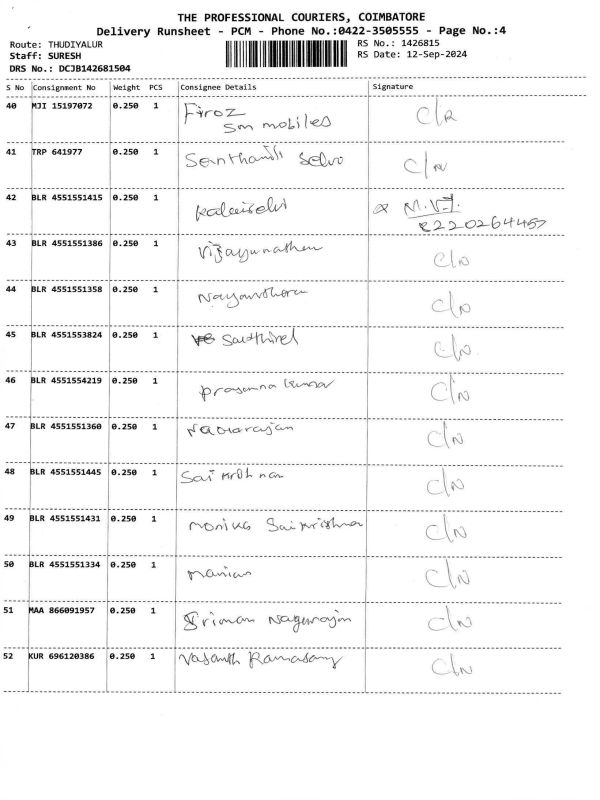 THE PROFESSIONAL COURIERS, COIMBATORE
Delivery Runsheet - PCM - Phone No.:0422-3505555 - Page No.:4
Route: THUDIYALUR
Staff: SURESH
DRS No.: DCJB142681504
RS No.: 1426815
RS Date: 12-Sep-2024
S No Consignment No Weight PCS Consignee Details Signature
40 MJI 15197072 0.250 1 Firoz C/R
Sm mobiles
41 TRP 641977 0.250 1 C/N
42 BLR 4551551415 0.250 1 Kalaiselvi M.V.J.
43 BLR 4551551386 0.250 1 Vijayunathen C/N
44 BLR 4551551358 0.250 1 C/N
45 BLR 4551553824 0.250 1 C/N
46 BLR 4551554219 0.250 1 prasanna kumar C/N
47 BLR 4551551360 0.250 1 C/N
48 BLR 4551551445 0.250 1 C/N
49 BLR 4551551431 0.250 1 Monika Saikrishna C/N
50 BLR 4551551334 0.250 1 C/N
51 MAA 866091957 0.250 1 Sriman Nagurajan C/N
52 KUR 696120386 0.250 1 Vasanth Ramasamy C/N